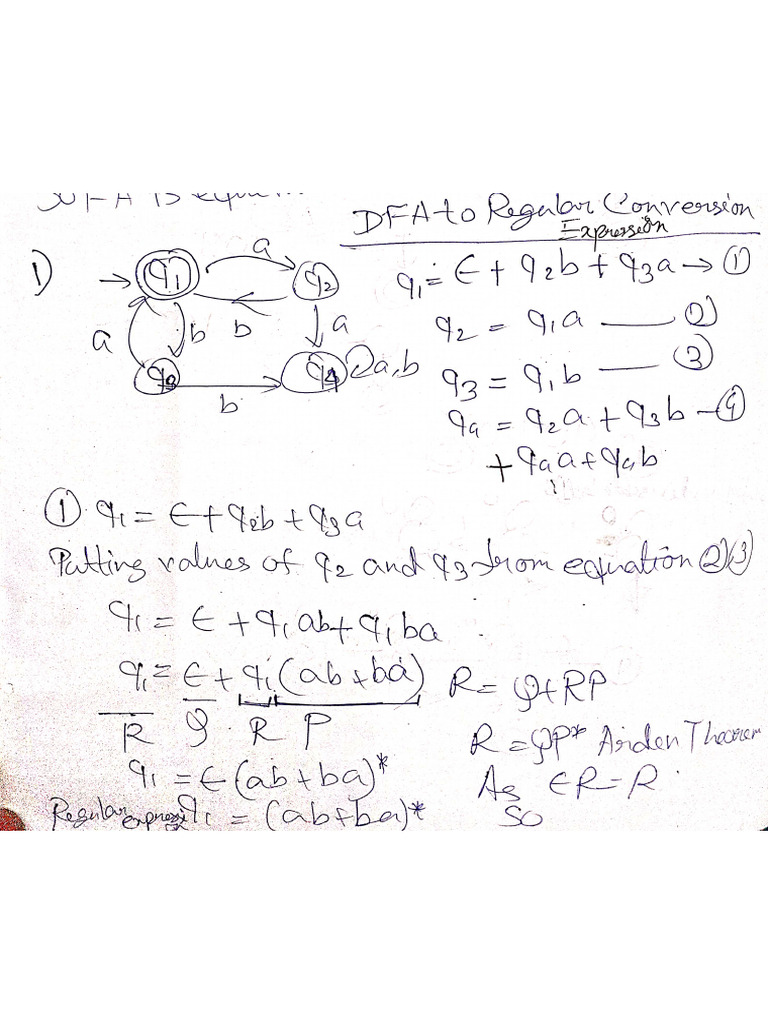 DFA to Regular Conversion
Expression
1)
q1 a q2
a b b a
q3 b q4 a,b
q1 = ϵ + q2b + q3a → ①
q2 = q1a — ②
q3 = q1b — ③
q4 = q2a + q3b — ④
+ q4a + q4b
① q1 = ϵ + q2b + q3a
Putting values of q2 and q3 from equation ② ③
q1 = ϵ + q1ab + q1ba
q1 = ϵ + q1(ab + ba) R = Q + RP
R Q R P R = QP* Arden Theorem
q1 = ϵ(ab + ba)* As ϵR = R
Regular q1 = (ab + ba)* so